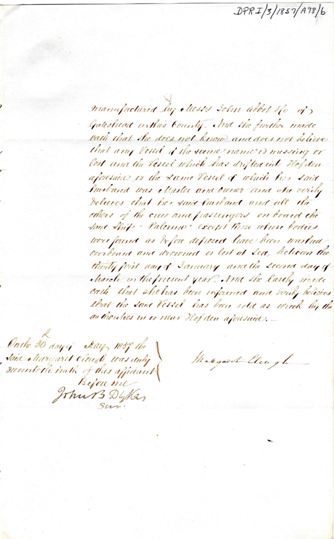 DPRI/3/1857/A78/6
manufactured by Messrs John Abbot & Co of
Gateshead in this County And she further made
oath that she does not know and does not believe
that any Vessel of the same name is missing or
lost and the Vessel which has drifted at
aforesaid is the same Vessel of which her said
husband was Master and owner and she verily
believes that her said husband and all the
others of the crew and passengers on board the
said Ship except those whose bodies
were found as before deposed have been washed
overboard and drowned or lost at Sea between the
thirty first day of January and the second day of
March in the present year And she lastly made
oath that she has been informed and verily believes
that the said Vessel has been sold as wreck by the
authorities in or near aforesaid.
On the 30 day of May 1857 the
said Margaret Clough was duly
sworn to the truth of this affidavit
Before me
John B Dykes
Sur.
Margaret Clough